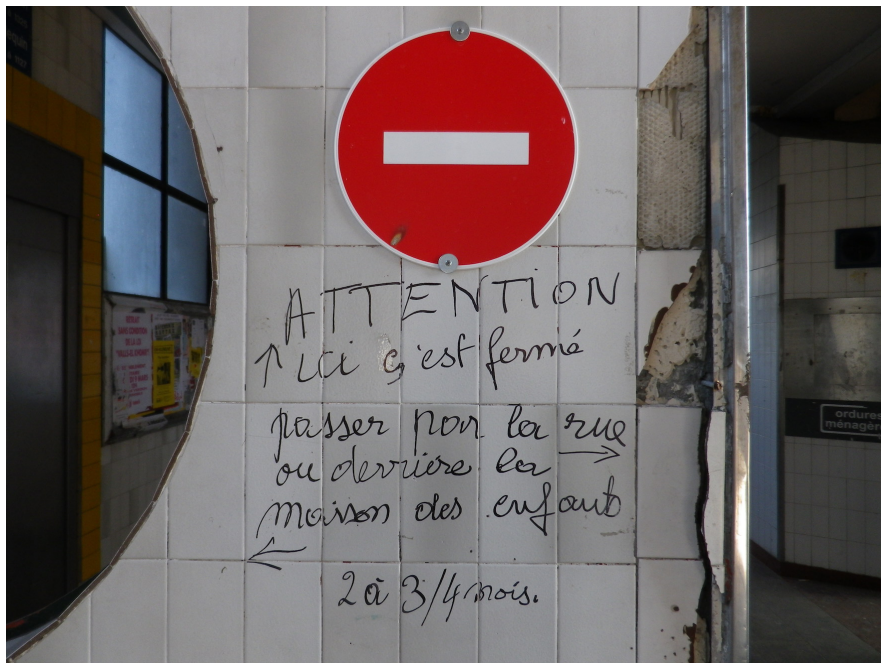 ATTENTION
↑ ici c'est fermé
passer par la rue →
ou derrière la
maison des enfants
←
2 à 3/4 mois.
ordures
ménagères